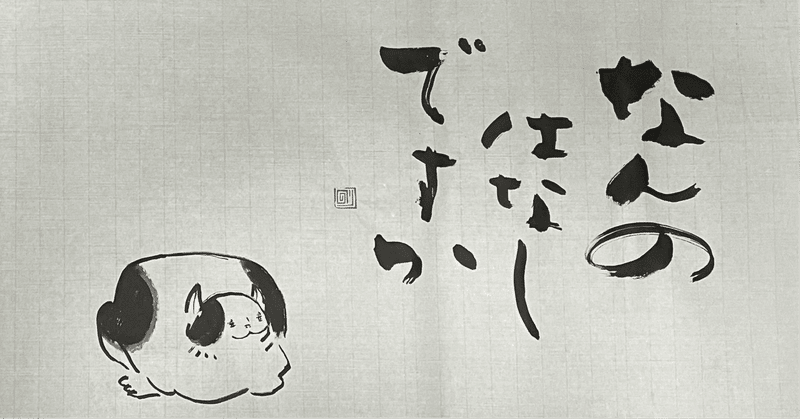 なんの
仕なし
ですか